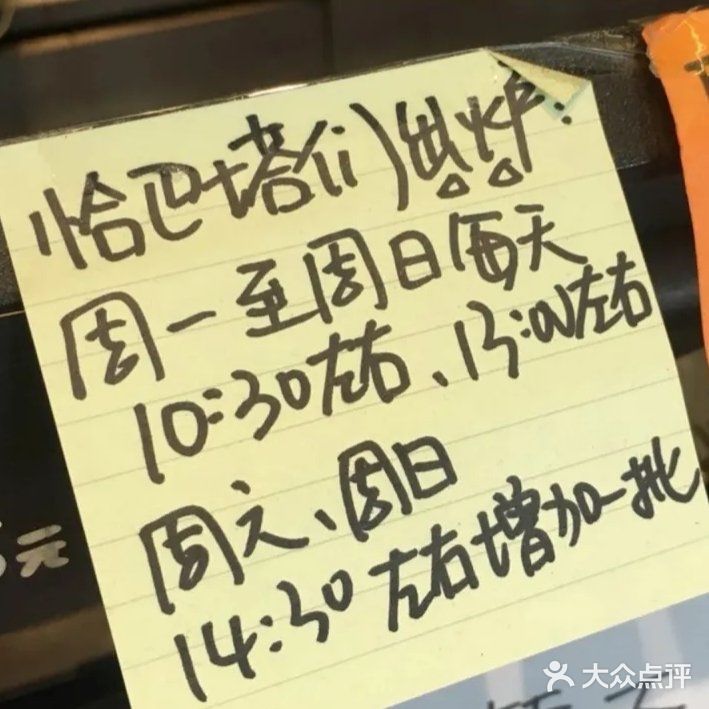 恰巴塔们出炉:
周一至周日每天
10:30左右、13:00左右
周六、周日
14:30左右增加一批
5元
大众点评